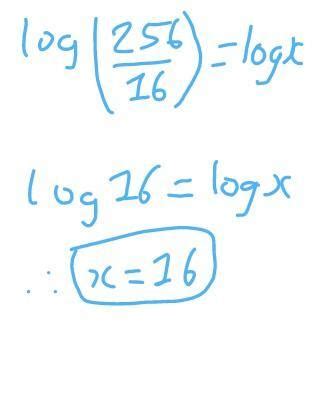 log(256/16) = log x
log 16 = log x
∴ x = 16